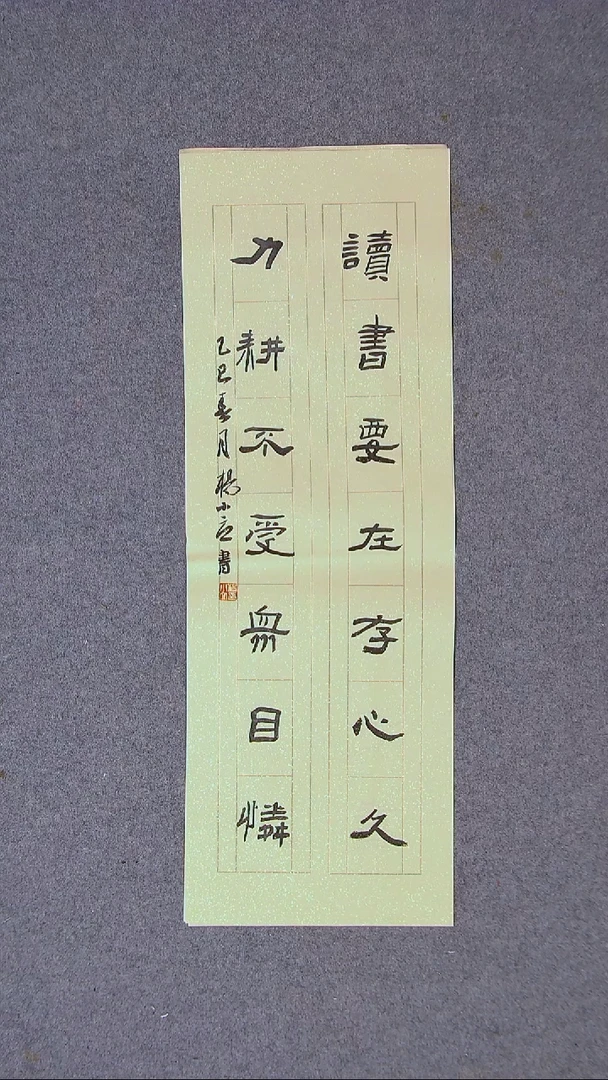 讀書要在存心久
力耕不受眾目憐
乙巳春月楊小立書